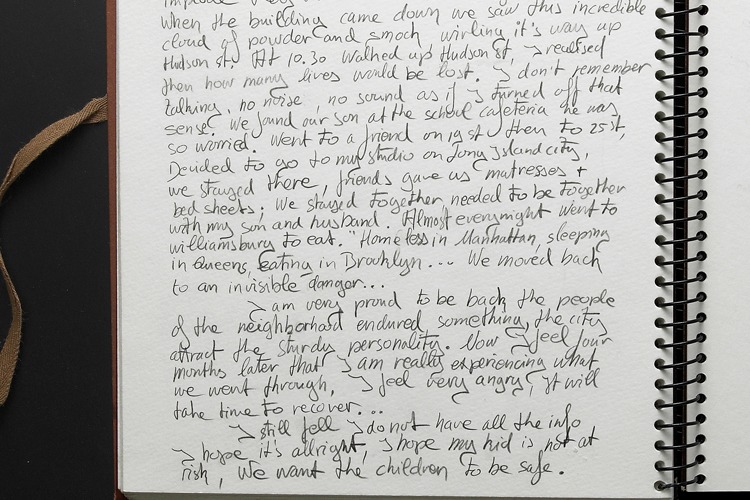 When the building came down we saw this incredible
cloud of powder and smoch wirling it's way up
Hudson st. At 10.30 walked up Hudson st, I realised
then how many lives would be lost. I don't remember
talking, no noise, no sound as if I turned off that
sense. We found our son at the school cafeteria he was
so worried. Went to a friend on 19 st then to 25 st,
Decided to go to my studio on Long Island city,
we stayed there, friends gave us matresses +
bed sheets; We stayed together, needed to be together
with my son and husband. Almost everynight went to
williamsburg to eat. "Homeless in Manhattan, sleeping
in Queens, eating in Brooklyn... We moved back
to an invisible danger...
I am very proud to be back, the people
of the neighborhood endured something, the city
attract the sturdy personality. Now I feel four
months later that I am really experiencing what
we went through, I feel very angry, It will
take time to recover...
I still fell I do not have all the info
I hope it's allright, I hope my kid is not at
risk, We want the children to be safe.